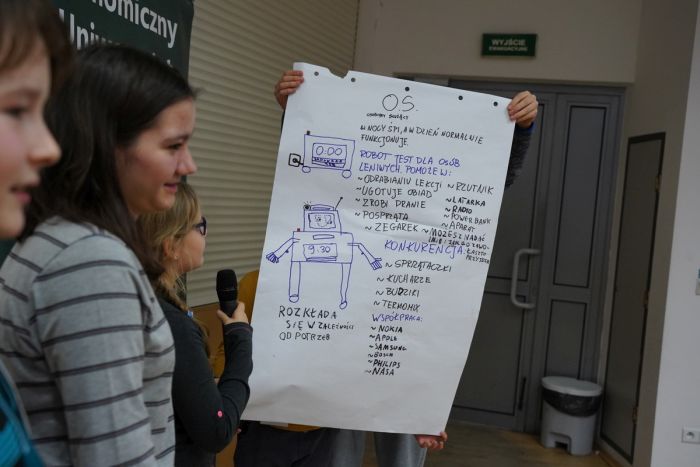 onomiczny
Uniwersytet
WYJŚCIE
EWAKUACYJNE
O.S.
OSOBISTY SŁUŻĄCY
W NOCY ŚPI, A W DZIEŃ NORMALNIE
FUNKCJONUJE.
ROBOT JEST DLA OSÓB
LENIWYCH. POMOŻE W:
~ODRABIANIU LEKCJI
~UGOTUJE OBIAD
~ZROBI PRANIE
~POSPRZĄTA
~ZEGAREK
~RZUTNIK
~LATARKA
~RADIO
~POWERBANK
~APARAT
~MOŻESZ NADAĆ
0:00
9:30
KONKURENCJA:
~SPRZĄTACZKI
~KUCHARZE
~BUDZIKI
~TERMOMIX
WSPÓŁPRACA:
~NOKIA
~APPLE
~SAMSUNG
~BOSCH
~PHILIPS
~NASA
ROZKŁADA
SIĘ W ZALEŻNOŚCI
OD POTRZEB